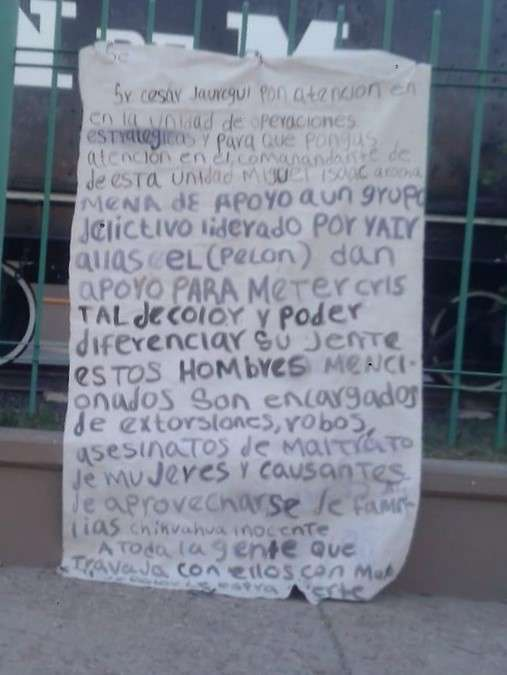 N DE M
Sr cesar Jauregui pon atencion en
en la unidad de operaciones
estrategicas y para que pongas
atencion en el comanandante de
de esta unidad Miguel Isaac
MENA DE APOYO A un grupo
delictivo liderado POR YAIR
alias EL (Pelon) dan
APOYO PARA METER CRIS
TAL de color y poder
diferenciar SU JENTE
ESTOS HOMBRES MENCI-
onados SON encargados
de extorsiones, robos,
asesinatos de MALTRATO
de MUJERES Y causantes
de aprovecharse de fami-
lias chihuahua inocente
A Toda la gente que
Travaja con ellos con